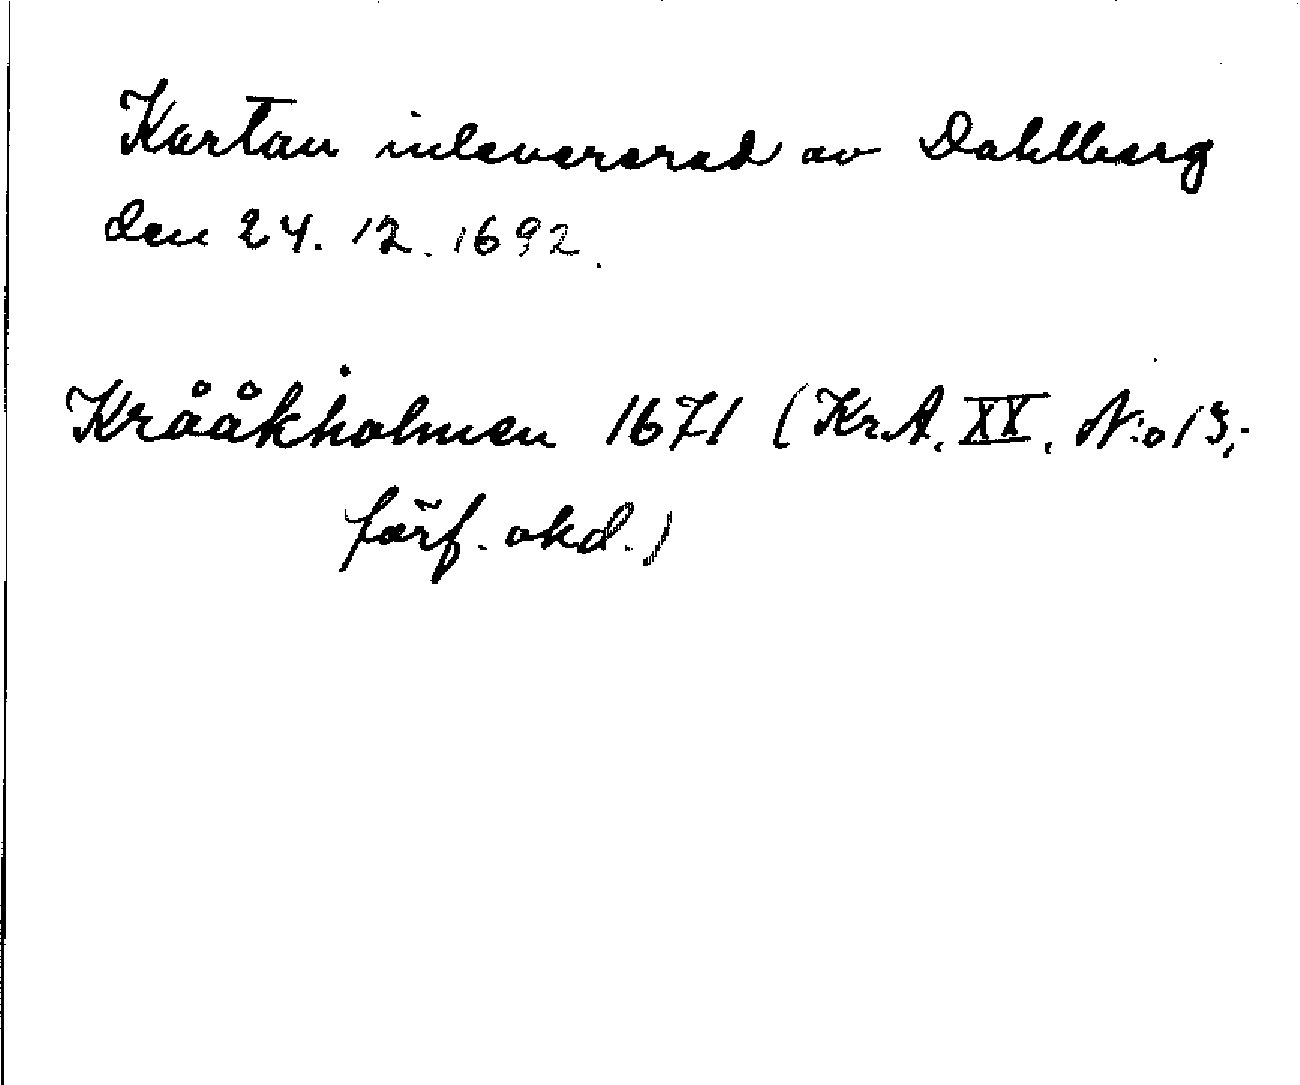 Kartan inlevererad av Dahlberg
den 24. 12. 1692.
Krååkholmen 1671 (Kr.A. XX. N:o 13,-
förf. okd.)